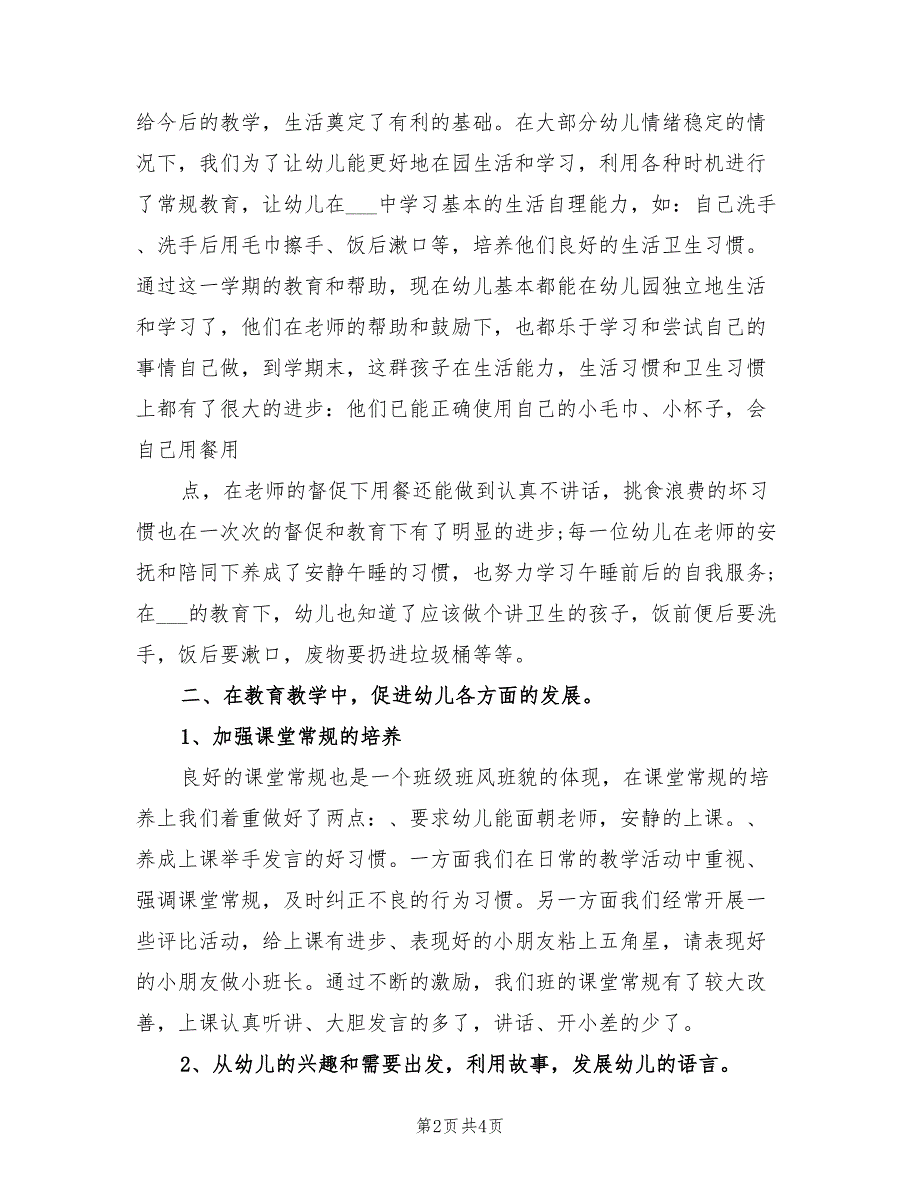 给今后的教学，生活奠定了有利的基础。在大部分幼儿情绪稳定的情
况下，我们为了让幼儿能更好地在园生活和学习，利用各种时机进行
了常规教育，让幼儿在___中学习基本的生活自理能力，如：自己洗手
、洗手后用毛巾擦手、饭后漱口等，培养他们良好的生活卫生习惯。
通过这一学期的教育和帮助，现在幼儿基本都能在幼儿园独立地生活
和学习了，他们在老师的帮助和鼓励下，也都乐于学习和尝试自己的
事情自己做，到学期末，这群孩子在生活能力，生活习惯和卫生习惯
上都有了很大的进步：他们已能正确使用自己的小毛巾、小杯子，会
自己用餐用
点，在老师的督促下用餐还能做到认真不讲话，挑食浪费的坏习
惯也在一次次的督促和教育下有了明显的进步;每一位幼儿在老师的安
抚和陪同下养成了安静午睡的习惯，也努力学习午睡前后的自我服务;
在___的教育下，幼儿也知道了应该做个讲卫生的孩子，饭前便后要洗
手，饭后要漱口，废物要扔进垃圾桶等等。
二、在教育教学中，促进幼儿各方面的发展。
1、加强课堂常规的培养
良好的课堂常规也是一个班级班风班貌的体现，在课堂常规的培
养上我们着重做好了两点：、要求幼儿能面朝老师，安静的上课。、
养成上课举手发言的好习惯。一方面我们在日常的教学活动中重视、
强调课堂常规，及时纠正不良的行为习惯。另一方面我们经常开展一
些评比活动，给上课有进步、表现好的小朋友粘上五角星，请表现好
的小朋友做小班长。通过不断的激励，我们班的课堂常规有了较大改
善，上课认真听讲、大胆发言的多了，讲话、开小差的少了。
2、从幼儿的兴趣和需要出发，利用故事，发展幼儿的语言。
第2页共4页